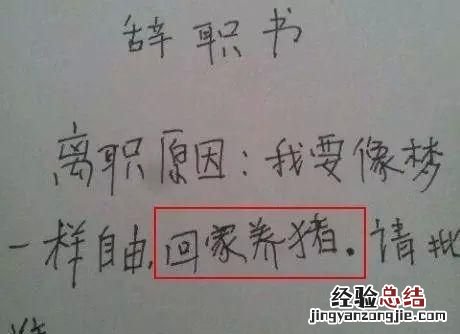 辞职书
离职原因：我要像梦
一样自由，回家养猪。请批
准
经验总结
anyangzongjie.com